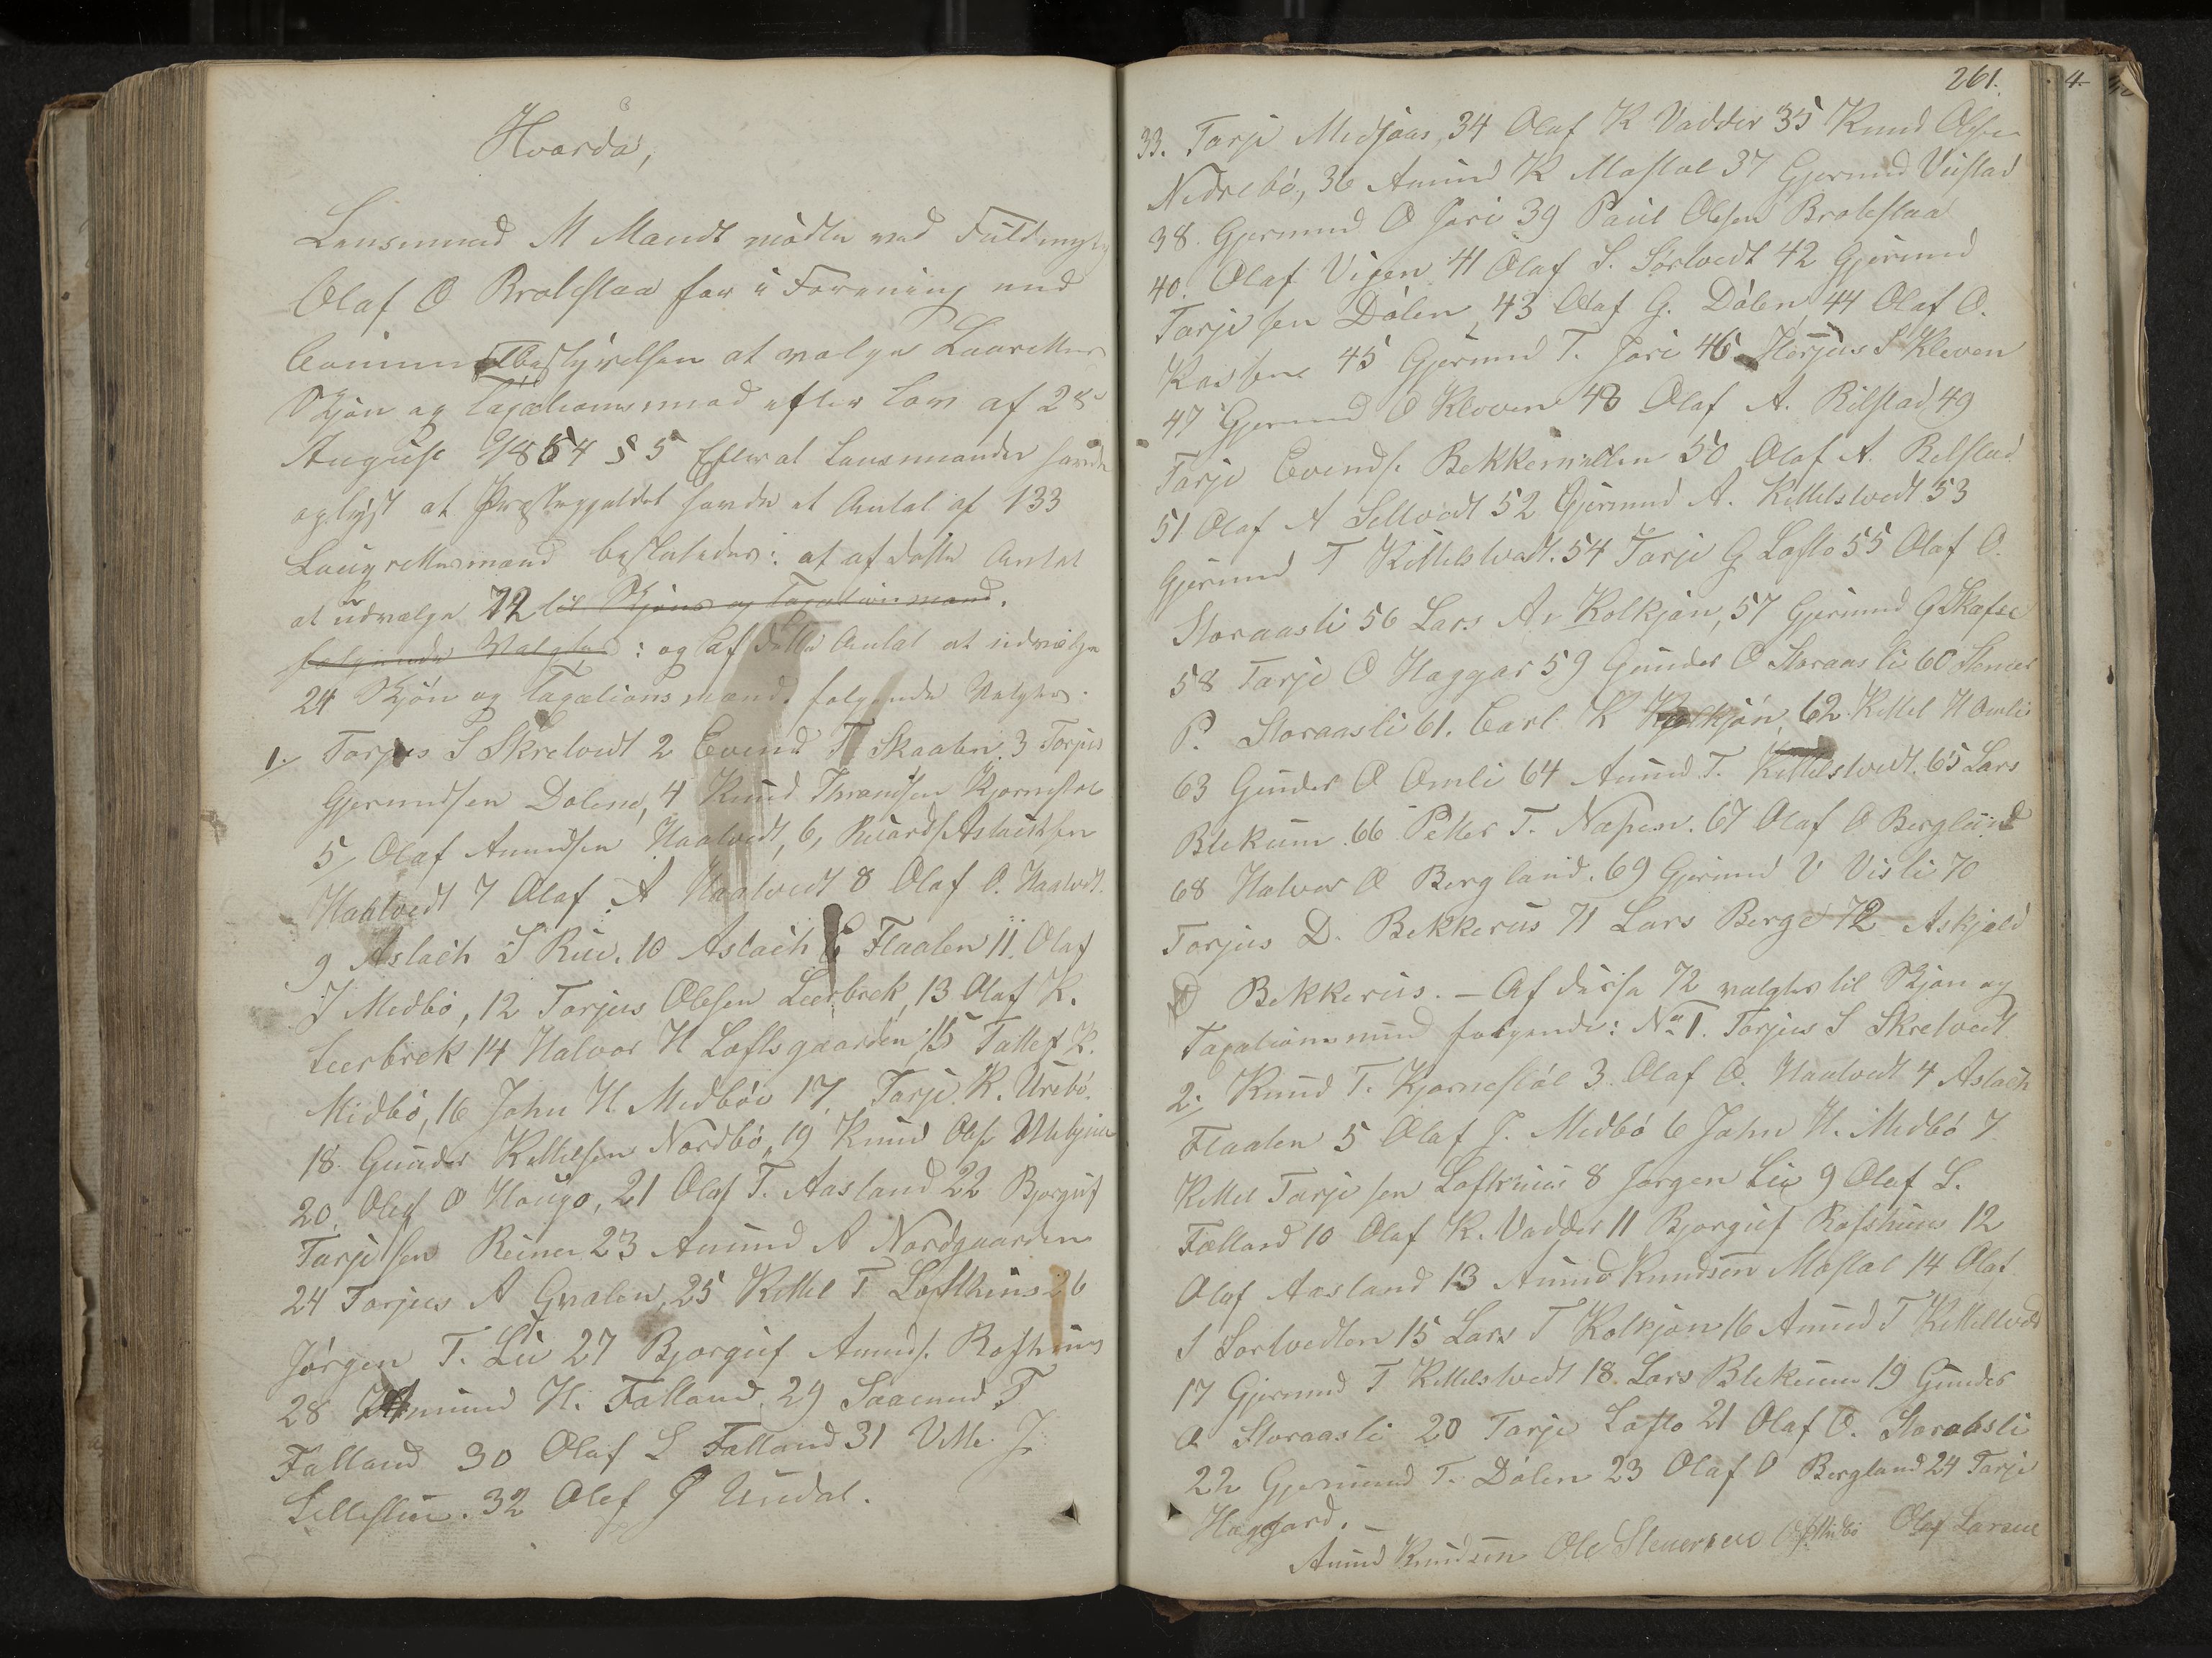 Hvorda,
Lensmand M Mandt mødte ved Fuldmægtig
Olaf O Brokeslaa for i Forening med
Communalbestyrelsen at vælge Laurettes
Skjøn og Taxationsmænd efter Lov af 28de
August 1854 § 5 Efterat Lensmanden havde
oplyst at Præstegjældet havde et Antal af 133
Laugrettesmænd besluttedes: at af dette Antal
at udvælge 72 til Skjøns og Taxationsmænd.
følgende Valgtes: og af dette Antal at udvælge
24 Skjøn og Taxationsmænd. følgende Valgtes:
1. Torjus S Skretvedt 2 Evend T Skaalen 3 Torjus
Gjermundsen Dølene, 4 Knud Thronsen Kjornestøl
5, Olaf Amundsen Haatvedt, 6, Aslaksen
Haatvedt 7 Olaf A Haatvedt 8 Olaf O. Haatvedt.
9 Aslach S Rui. 10 Aslach Flaaten 11. Olaf
J Medbø, 12 Torjus Olesen Leerbrek, 13 Olaf K.
Leerbrek 14 Halvor H Loftsgaarden 15 Tallef K.
Midbø, 16 John H. Medbøe 17, Tarje K. Urebø.
18. Gunder Kittelsen Nordbø, 19 Knud Ols.
20, Olaf O Haugo, 21 Olaf T. Aasland 22 Bjorguf
Tarjesen Reiner 23 Amund A Nordgaarden
24 Torjus A Gvalen, 25 Kittel T Lofthuus 26
Jørgen T. Lii 27 Bjorguf Amunds. Rofshuus
28 Amund H. Falland, 29 Saamund T
Falland 30 Olaf L Falland 31 J
32 Olaf Undal.
261.
33. Tarje Medjaas, 34 Olaf K Vadder 35 Knud Olsen
Nedrebø, 36 Amund K Mostøl 37 Gjermund
38. Gjermund O Jori 39 Paul Olesen Brokeslaa
40. Olaf Vigen 41 Olaf S. Sortvedt 42 Gjermund
Tarjesen Dølen, 43 Olaf G. Dølen, 44 Olaf O.
45 Gjermund T. Jori 46 S Kleven
47 Gjermund O Kleven 48 Olaf A. Rilstad 49
Tarje Evends. Bekkemellen 50 Olaf A. Relstad
51 Olaf A Sellvedt 52 Gjermund A. Kittelstvedt 53
Gjermund T Kittelstvedt. 54 Tarje G Lofto 55 Olaf O.
Storaasli 56 Lars A. Kolkjøn, 57 Gjermund G Skafse
58 Tarje O Haggar 59 Gunder O Storaasli 60 Stener
P. Storaasli 61. Carl K Kolkjøn, 62 Kittel H Omli
63 Gunder O Omli 64 Amund T. Kittelstvedt. 65 Lars
Blekum. 66 Petter T. Næpen. 67 Olaf O Bergland
68 Halvor O Bergland. 69 Gjermund V Visli 70
Torjus D. Bekkerus 71 Lars Berge 72 Askjæld
D Bekkerus. – Af disse 72 valgtes til Skjøn og
Taxationsmænd følgende: No 1. Torjus S Skretvedt
2, Knud T. Kjornestøl 3. Olaf O. Haatvedt 4 Aslach
Flaaten 5 Olaf J. Medbø 6 John H. Medbø 7
Kittel Tarjesen Lofthuus 8 Jørgen Lii 9 Olaf L.
Falland 10 Olaf K. Vadder 11 Bjorguf Rofshuus 12
Olaf Aasland 13 Amund Knudsen Mostøl 14 Olaf
S Sortvedten 15 Lars T Kolkjøn 16 Amund T Kittelstvedt
17 Gjermund T Kittelstvedt 18. Lars Blekum 19 Gunder
O Storaasli 20 Tarje Lofto 21 Olaf O. Storaasli
22 Gjermund T. Dølen 23 Olaf O Bergland 24 Tarje
Haggard. –
Amund Knudsen Ole Stenersen Olaf Larsen